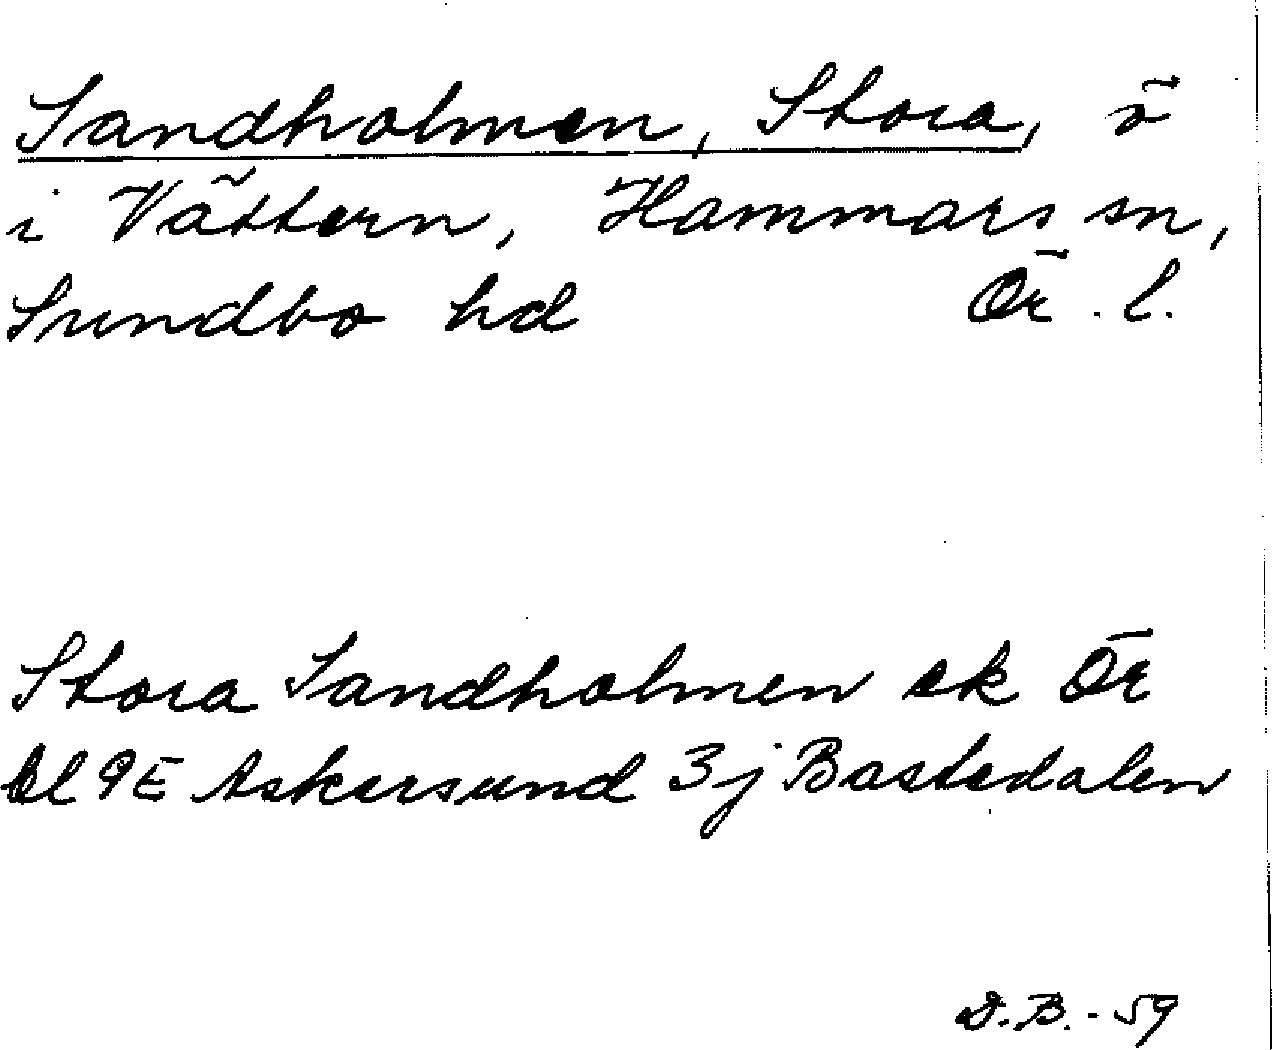 Sandholmen, Stora, ö
i Vättern, Hammars sn,
Sundbo hd Ör. l.
Stora Sandholmen ek Ör
bl 9E Askersund 3j Bastedalen
D.B. - 59